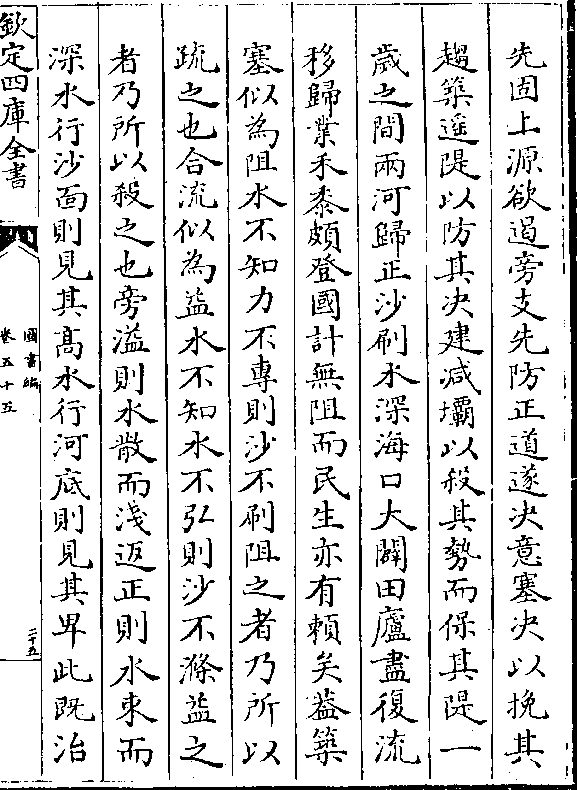 先固上源欲遏旁支先防正道遂决意塞决以挽其
趨築遥隄以防其决建减壩以殺其勢而保其隄一
歲之間兩河歸正沙刷水深海口大闢田廬盡復流
移歸業禾黍頗登國計無阻而民生亦有賴矣葢築
塞似為阻水不知力不專則沙不刷阻之者乃所以
疏之也合流似為益水不知水不弘則沙不滌益之
者乃所以殺之也旁溢則水散而淺返正則水束而
深水行沙面則見其高水行河底則見其卑此既治
欽定四庫全書
圖書編
卷五十五
三十五